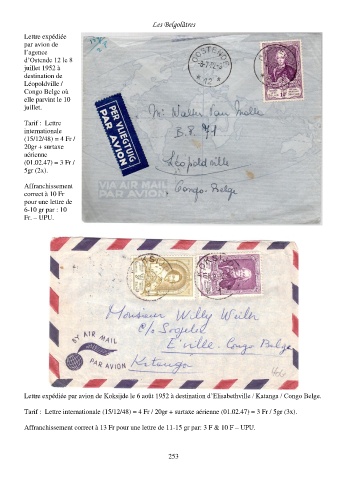 Les Belgolâtres
Lettre expédiée
par avion de
l'agence
d'Ostende 12 le 8
juillet 1952 à
destination de
Léopoldville /
Congo Belge où
elle parvint le 10
juillet.
Tarif : Lettre
internationale
(15/12/48) = 4 Fr /
20gr + surtaxe
aérienne
(01.02.47) = 3 Fr /
5gr (2x).
Affranchissement
correct à 10 Fr
pour une lettre de
6-10 gr par : 10
Fr. – UPU.
OOSTENDE
12
PER VLIEGTUIG
PAR AVION
Mr Walter Van
B.P. 71
Léopoldville
Congo-Belge
VIA AIR MAIL
PAR AVION
Monsieur Willy
c/o
E'ville. Congo Belge
Katanga
BY AIR MAIL
PAR AVION
Lettre expédiée par avion de Koksijde le 6 août 1952 à destination d'Elisabethville / Katanga / Congo Belge.
Tarif : Lettre internationale (15/12/48) = 4 Fr / 20gr + surtaxe aérienne (01.02.47) = 3 Fr / 5gr (3x).
Affranchissement correct à 13 Fr pour une lettre de 11-15 gr par: 3 F & 10 F – UPU.
253